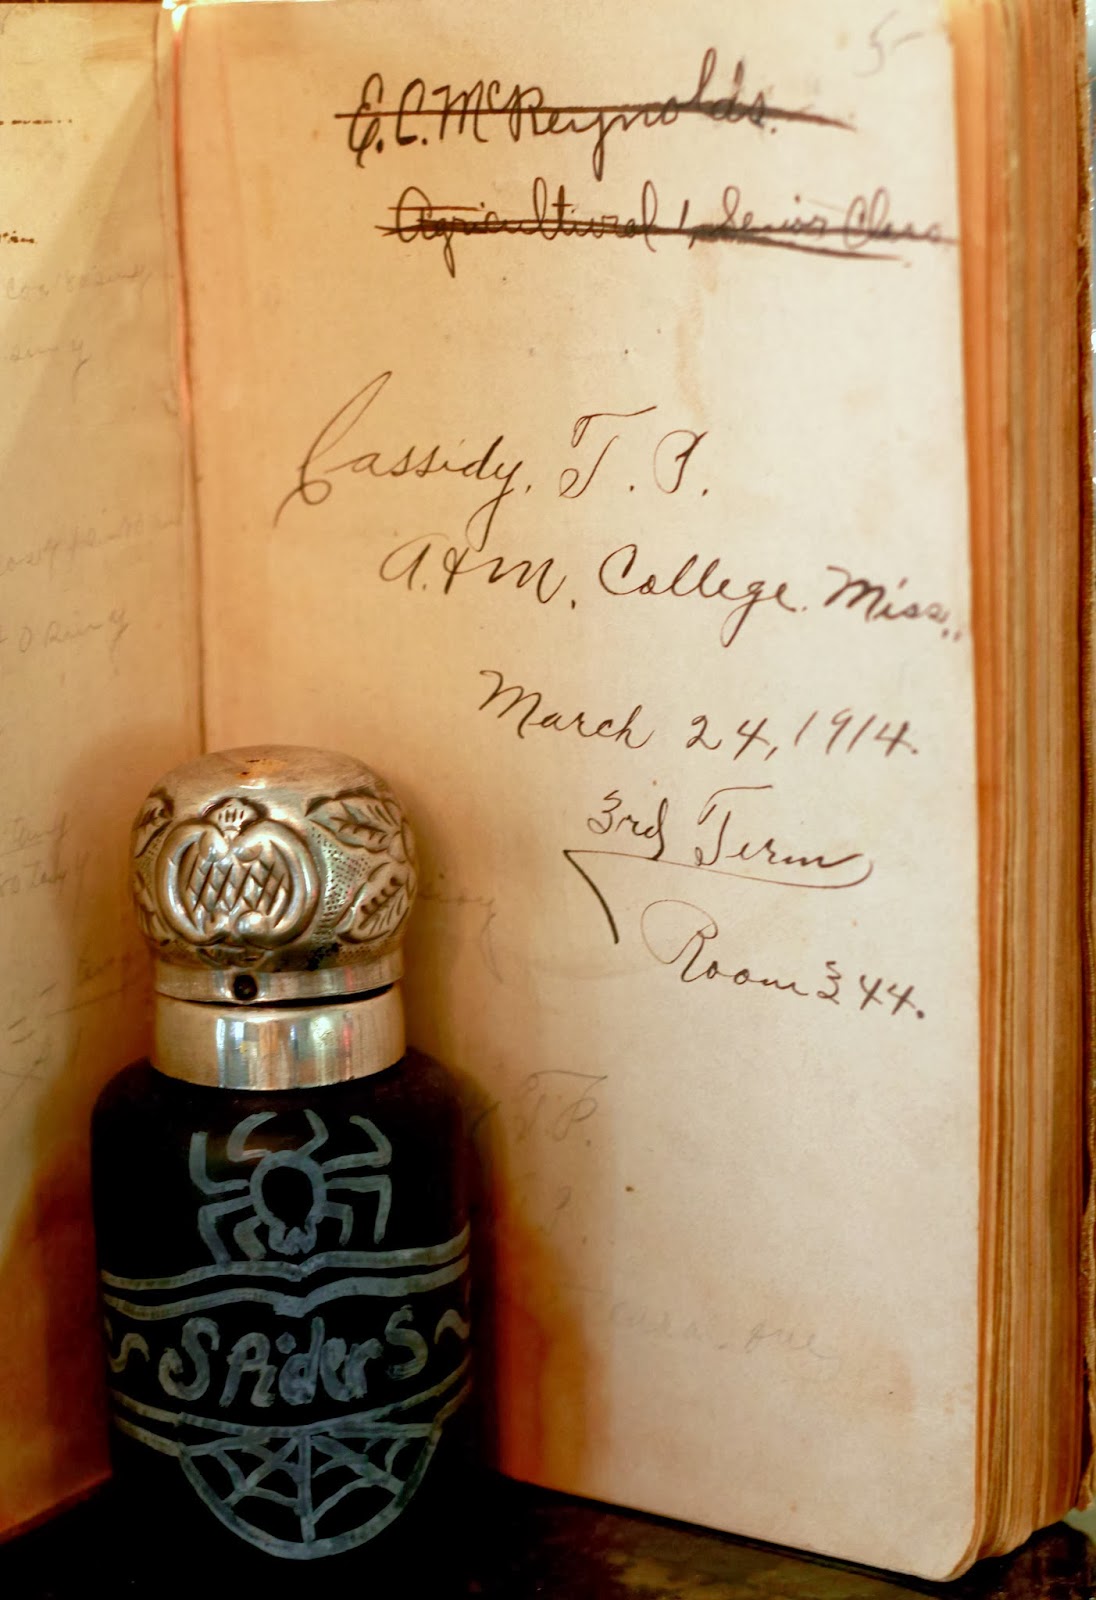 5-
E.C. McReynolds.
Agricultural, Senior Class
Cassidy, T. P.
A. & M. College. Miss.,
March 24, 1914.
3rd Term
Room 344.
T. P.
SpiderS